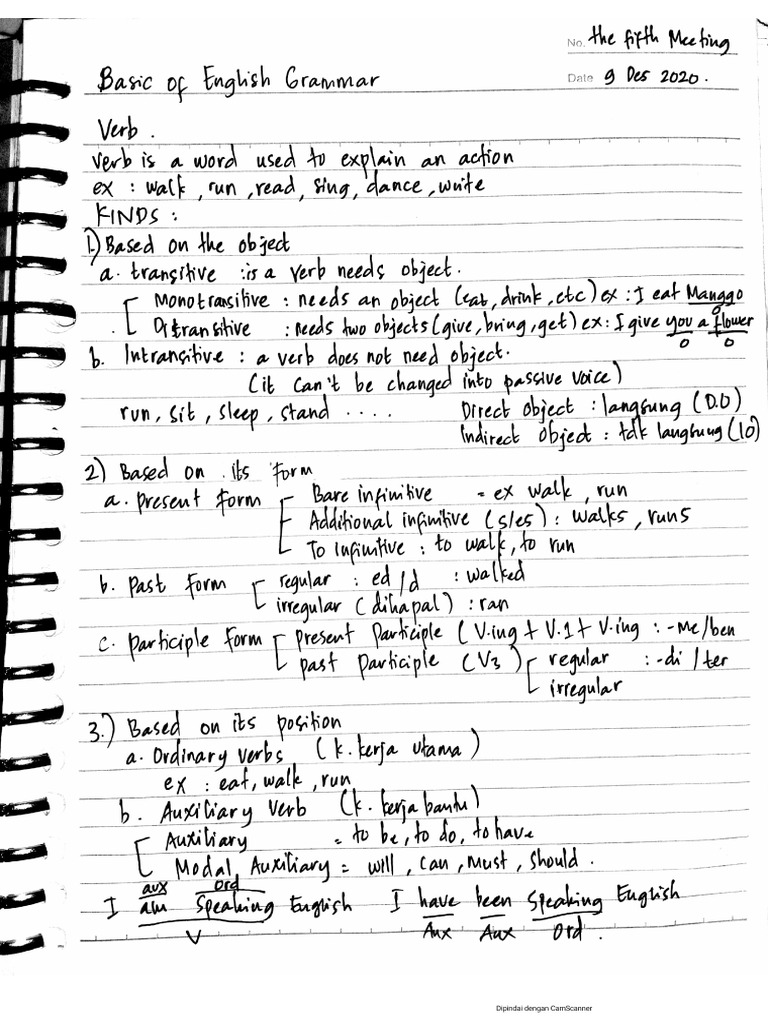 No. the fifth Meeting
Basic of English Grammar
Date 9 Des 2020.
Verb.
Verb is a word used to explain an action
ex : walk, run, read, sing, dance, write
KINDS :
1.) Based on the object
a. transitive : is a verb needs object.
Monotransitive : needs an object (eat, drink, etc) ex : I eat Manggo
O
Ditransitive : needs two objects (give, bring, get) ex : I give you a flower
O O
b. Intransitive : a verb does not need object.
(it can't be changed into passive voice)
run, sit, sleep, stand .... Direct object : langsung (D.O)
Indirect object : tdk langsung (IO)
2) Based on its form
a. present form Bare infinitive = ex walk, run
Additional infinitive (s/es) : walks, runs
To Infinitive : to walk, to run
b. Past form regular : ed/d : walked
irregular (dihapal) : ran
c. participle form present Participle (V.ing + V.1 + V.ing : -me/ben
past participle (V3) regular : -di / ter
irregular
3.) Based on its position
a. Ordinary verbs (k. kerja utama)
ex : eat, walk, run
b. Auxiliary Verb (k. kerja bantu)
Auxiliary = to be, to do, to have
Modal Auxiliary = will, can, must, should.
aux ord
I am speaking English I have been speaking English
V Aux Aux Ord.
Dipindai dengan CamScanner